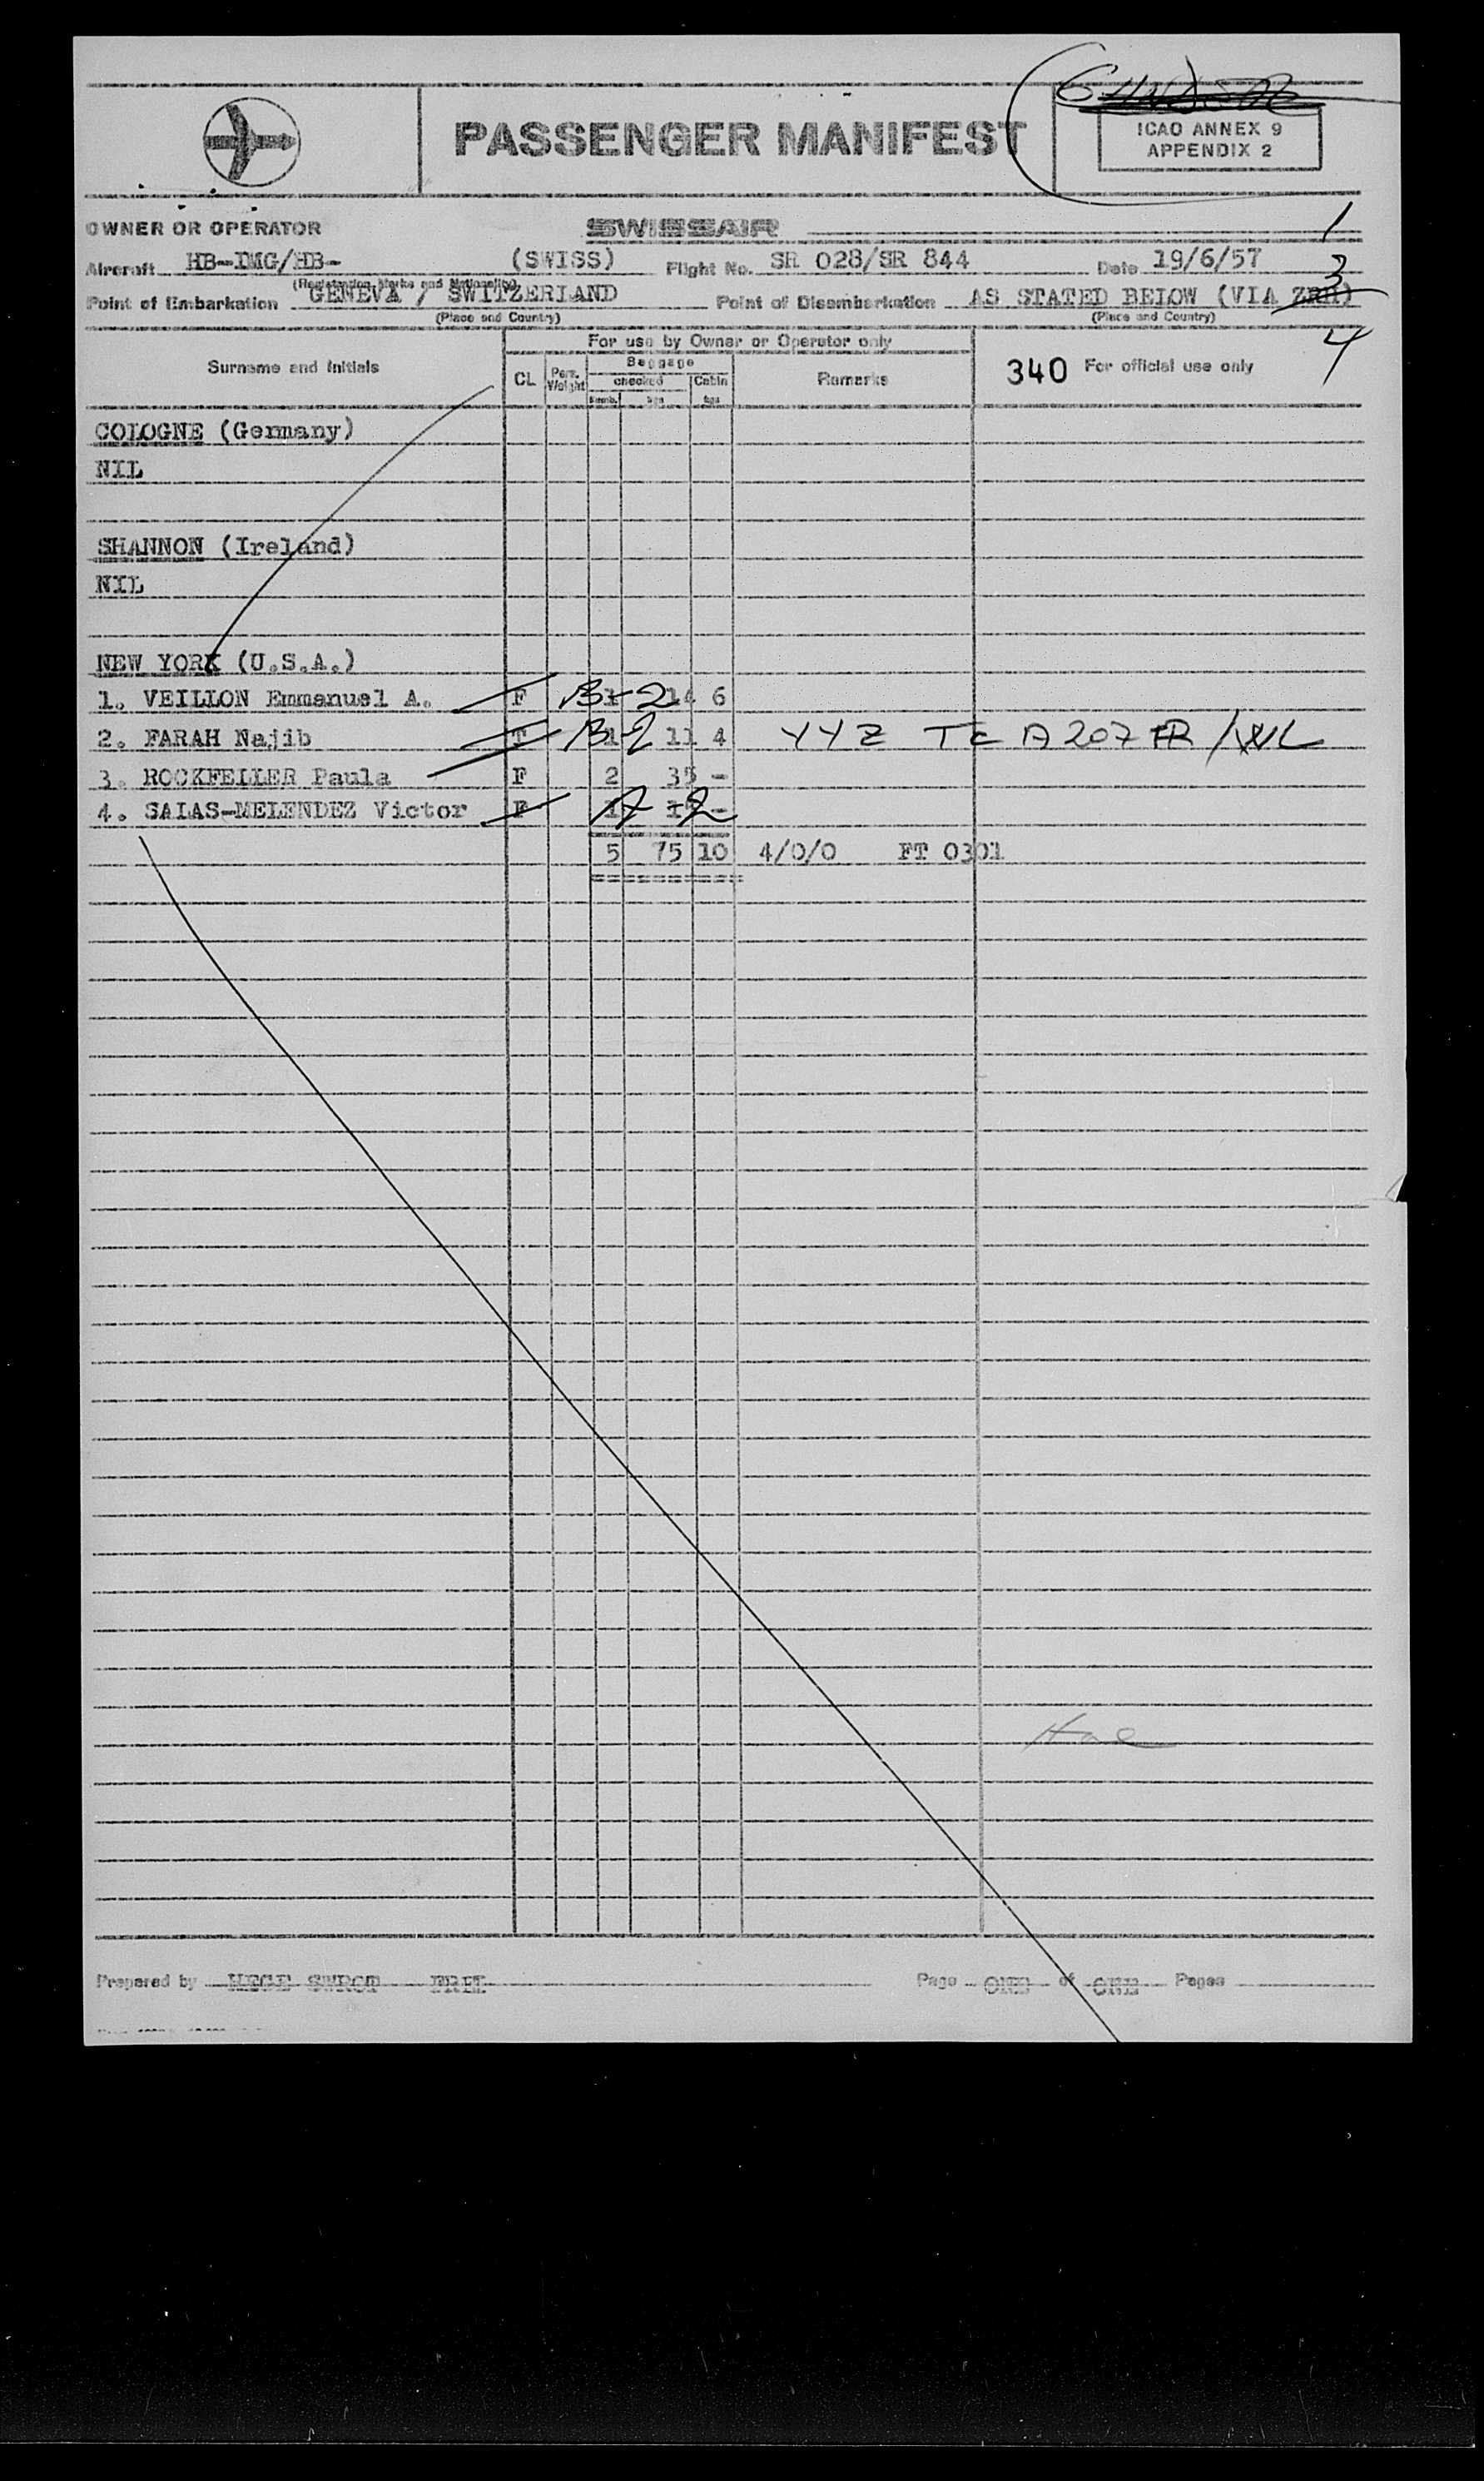 PASSENGER MANIFEST
ICAO ANNEX 9
APPENDIX 2
OWNER OR OPERATOR SWISSAIR
1
Aircraft HB-IMG/HB- (SWISS) Flight No. SR 028/SR 844 Date 19/6/57
(Registration Marks and Nationality)
3
Point of Embarkation GENEVA / SWITZERLAND Point of Disembarkation AS STATED BELOW (VIA ZRH)
(Place and Country) (Place and Country)
4
For use by Owner or Operator only
Surname and Initials CL Pers. Weight Baggage checked Numb. kgs Cabin kgs Remarks 340 For official use only
COLOGNE (Germany)
NIL
SHANNON (Ireland)
NIL
NEW YORK (U.S.A.)
1. VEILLON Emmanuel A. F B-2 14 6
2. FARAH Najib T 1 B-2 11 4 YYZ TCA 207 FR/
3. ROCKFELLER Paula F 2 35 -
4. SALAS-MELENDEZ Victor F 1 A-2 -
5 75 10 4/0/0 FT 0301
Prepared by
Page ONE of ONE Pages